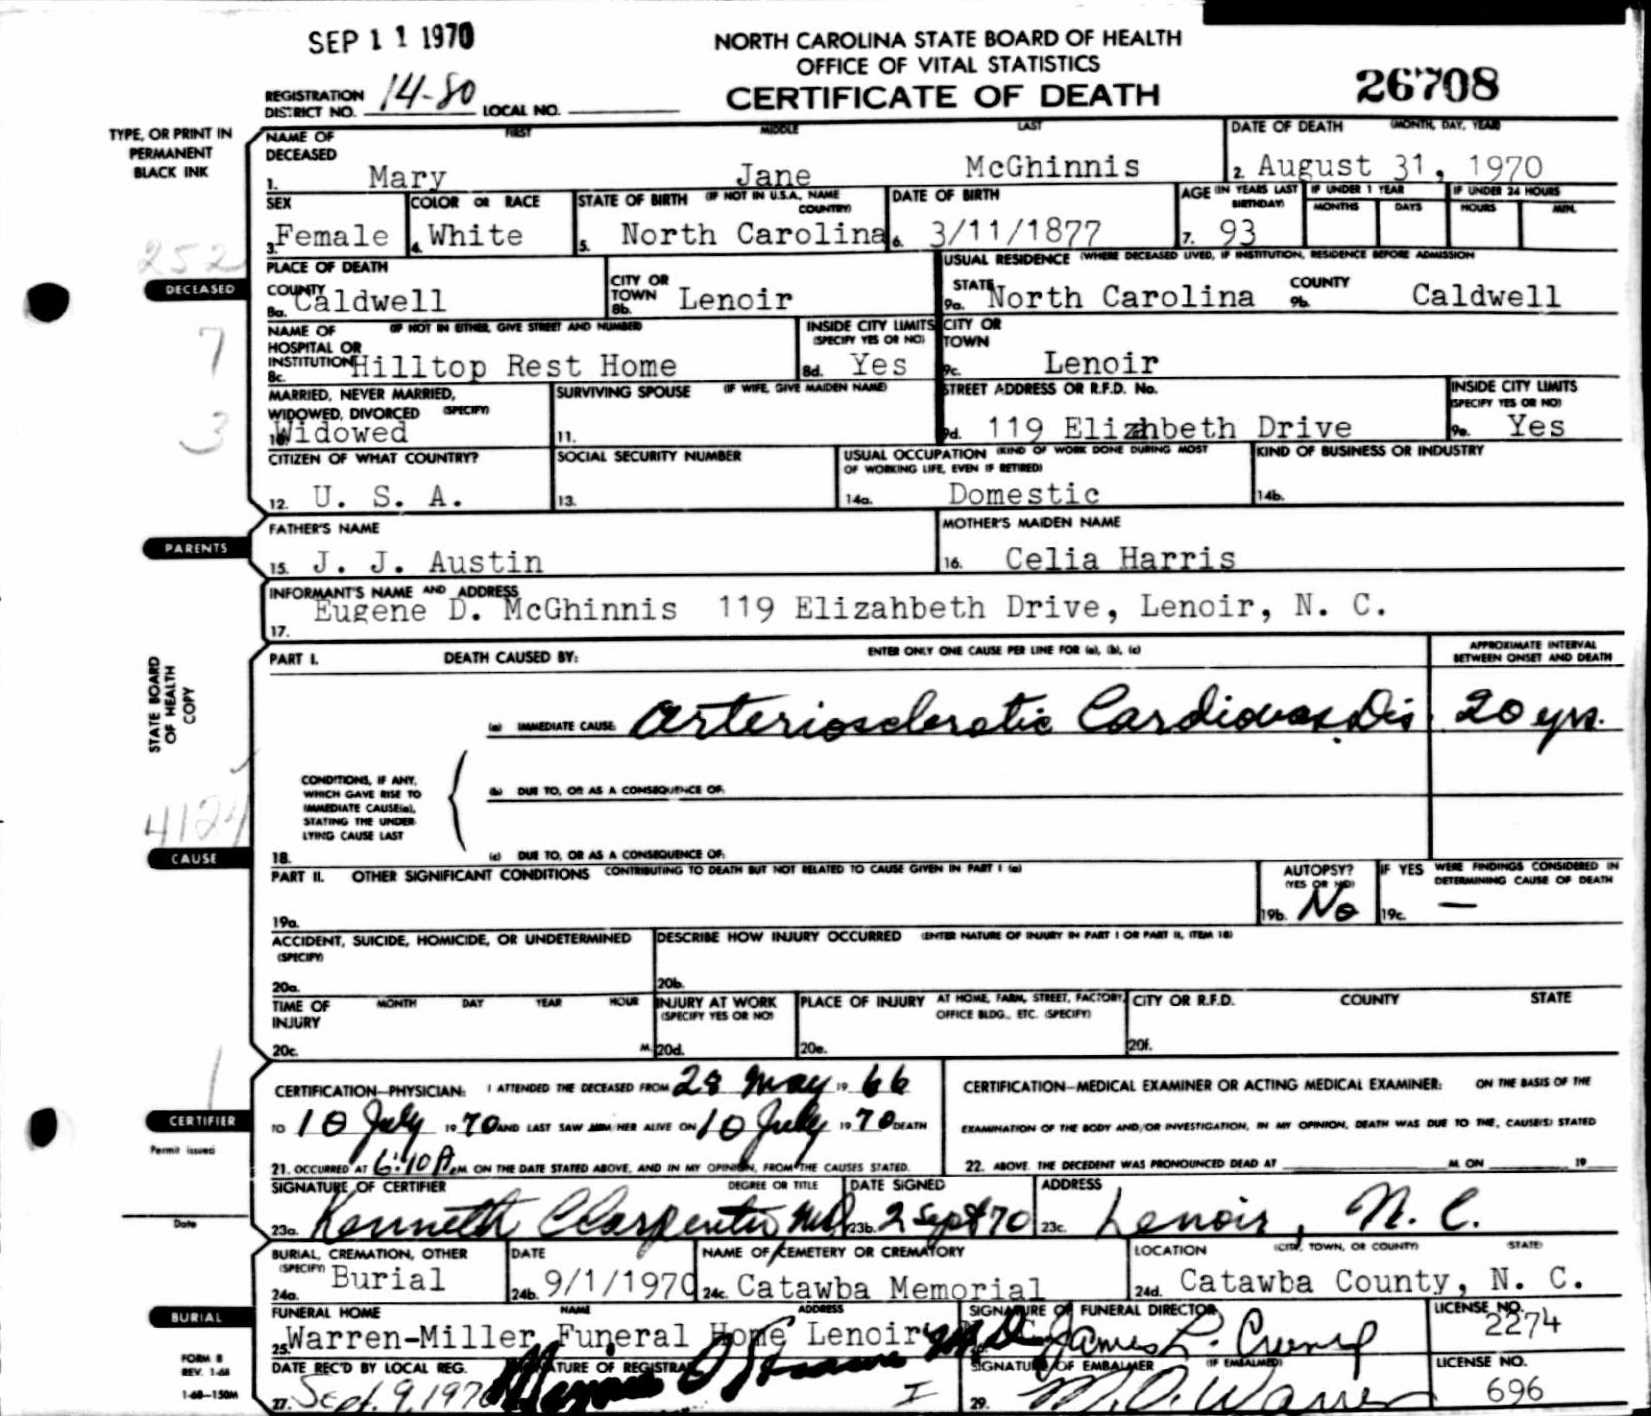 SEP 11 1970
NORTH CAROLINA STATE BOARD OF HEALTH
OFFICE OF VITAL STATISTICS
CERTIFICATE OF DEATH
26708
REGISTRATION DISTRICT NO. 14-80 LOCAL NO.
TYPE, OR PRINT IN PERMANENT BLACK INK
NAME OF DECEASED FIRST MIDDLE LAST
1. Mary Jane McGhinnis
DATE OF DEATH (MONTH, DAY, YEAR)
2. August 31, 1970
SEX 3. Female
COLOR OR RACE 4. White
STATE OF BIRTH (IF NOT IN U.S.A., NAME COUNTRY) 5. North Carolina
DATE OF BIRTH 6. 3/11/1877
AGE (IN YEARS LAST BIRTHDAY) 7. 93
IF UNDER 1 YEAR MONTHS DAYS
IF UNDER 24 HOURS HOURS MIN.
252
DECEASED
7
3
PLACE OF DEATH
COUNTY 8a. Caldwell
CITY OR TOWN 8b. Lenoir
USUAL RESIDENCE (WHERE DECEASED LIVED, IF INSTITUTION, RESIDENCE BEFORE ADMISSION
STATE 9a. North Carolina
COUNTY 9b. Caldwell
NAME OF HOSPITAL OR INSTITUTION (IF NOT IN EITHER, GIVE STREET AND NUMBER)
8c. Hilltop Rest Home
INSIDE CITY LIMITS (SPECIFY YES OR NO) 8d. Yes
CITY OR TOWN 9c. Lenoir
MARRIED, NEVER MARRIED, WIDOWED, DIVORCED (SPECIFY)
10. Widowed
SURVIVING SPOUSE (IF WIFE, GIVE MAIDEN NAME)
11.
STREET ADDRESS OR R.F.D. No.
9d. 119 Elizahbeth Drive
INSIDE CITY LIMITS (SPECIFY YES OR NO) 9e. Yes
CITIZEN OF WHAT COUNTRY?
12. U. S. A.
SOCIAL SECURITY NUMBER
13.
USUAL OCCUPATION (KIND OF WORK DONE DURING MOST OF WORKING LIFE, EVEN IF RETIRED)
14a. Domestic
KIND OF BUSINESS OR INDUSTRY
14b.
PARENTS
FATHER'S NAME
15. J. J. Austin
MOTHER'S MAIDEN NAME
16. Celia Harris
INFORMANT'S NAME AND ADDRESS
17. Eugene D. McGhinnis 119 Elizahbeth Drive, Lenoir, N. C.
STATE BOARD OF HEALTH COPY
PART I. DEATH CAUSED BY: ENTER ONLY ONE CAUSE PER LINE FOR (a), (b), (c)
APPROXIMATE INTERVAL BETWEEN ONSET AND DEATH
(a) IMMEDIATE CAUSE: Arteriosclerotic Cardiovas. Dis 20 yrs.
CONDITIONS, IF ANY, WHICH GAVE RISE TO IMMEDIATE CAUSE(a), STATING THE UNDERLYING CAUSE LAST
(b) DUE TO, OR AS A CONSEQUENCE OF:
4124
CAUSE
18. (c) DUE TO, OR AS A CONSEQUENCE OF:
PART II. OTHER SIGNIFICANT CONDITIONS CONTRIBUTING TO DEATH BUT NOT RELATED TO CAUSE GIVEN IN PART I (a)
19a.
AUTOPSY? (YES OR NO) 19b. No
IF YES WERE FINDINGS CONSIDERED IN DETERMINING CAUSE OF DEATH
19c. —
ACCIDENT, SUICIDE, HOMICIDE, OR UNDETERMINED (SPECIFY)
20a.
DESCRIBE HOW INJURY OCCURRED (ENTER NATURE OF INJURY IN PART I OR PART II, ITEM 18)
20b.
TIME OF INJURY MONTH DAY YEAR HOUR
20c. M.
INJURY AT WORK (SPECIFY YES OR NO)
20d.
PLACE OF INJURY AT HOME, FARM, STREET, FACTORY, OFFICE BLDG., ETC. (SPECIFY)
20e.
CITY OR R.F.D. COUNTY STATE
20f.
1
CERTIFIER
Permit issued
Date
CERTIFICATION—PHYSICIAN: I ATTENDED THE DECEASED FROM 28 May 19 66
TO 10 July 19 70 AND LAST SAW HIM HER ALIVE ON 10 July 19 70 DEATH
21. OCCURRED AT 6:10 P. M. ON THE DATE STATED ABOVE, AND IN MY OPINION, FROM THE CAUSES STATED.
CERTIFICATION—MEDICAL EXAMINER OR ACTING MEDICAL EXAMINER: ON THE BASIS OF THE
EXAMINATION OF THE BODY AND/OR INVESTIGATION, IN MY OPINION, DEATH WAS DUE TO THE, CAUSE(S) STATED
22. ABOVE. THE DECEDENT WAS PRONOUNCED DEAD AT M. ON 19
SIGNATURE OF CERTIFIER DEGREE OR TITLE
23a. Kenneth C Carpenter M.D.
DATE SIGNED 23b. 2 Sept 70
ADDRESS 23c. Lenoir, N. C.
BURIAL, CREMATION, OTHER (SPECIFY)
24a. Burial
DATE 24b. 9/1/1970
NAME OF CEMETERY OR CREMATORY
24c. Catawba Memorial
LOCATION (CITY, TOWN, OR COUNTY) (STATE)
24d. Catawba County, N. C.
BURIAL
FUNERAL HOME NAME ADDRESS
25. Warren-Miller Funeral Home Lenoir
SIGNATURE OF FUNERAL DIRECTOR
James L.
LICENSE NO. 2274
FORM 8
REV. 1-68
1-68—150M
DATE REC'D BY LOCAL REG.
27. Sept. 9, 1970
SIGNATURE OF REGISTRAR
M.D.
I
SIGNATURE OF EMBALMER (IF EMBALMED)
29. M. O. Warren
LICENSE NO. 696